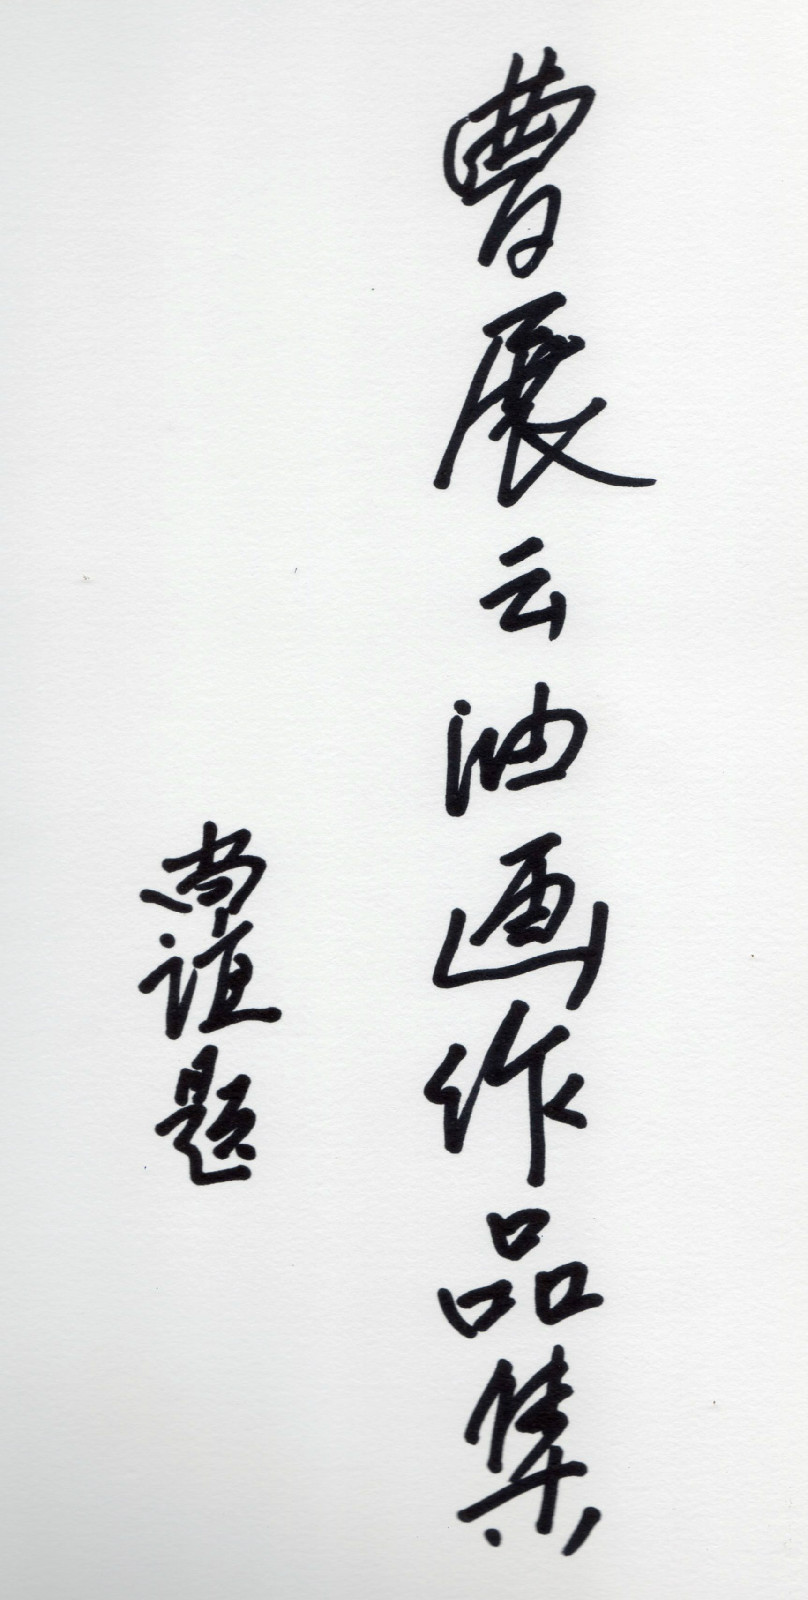 曹展云油画作品集
尚谊题